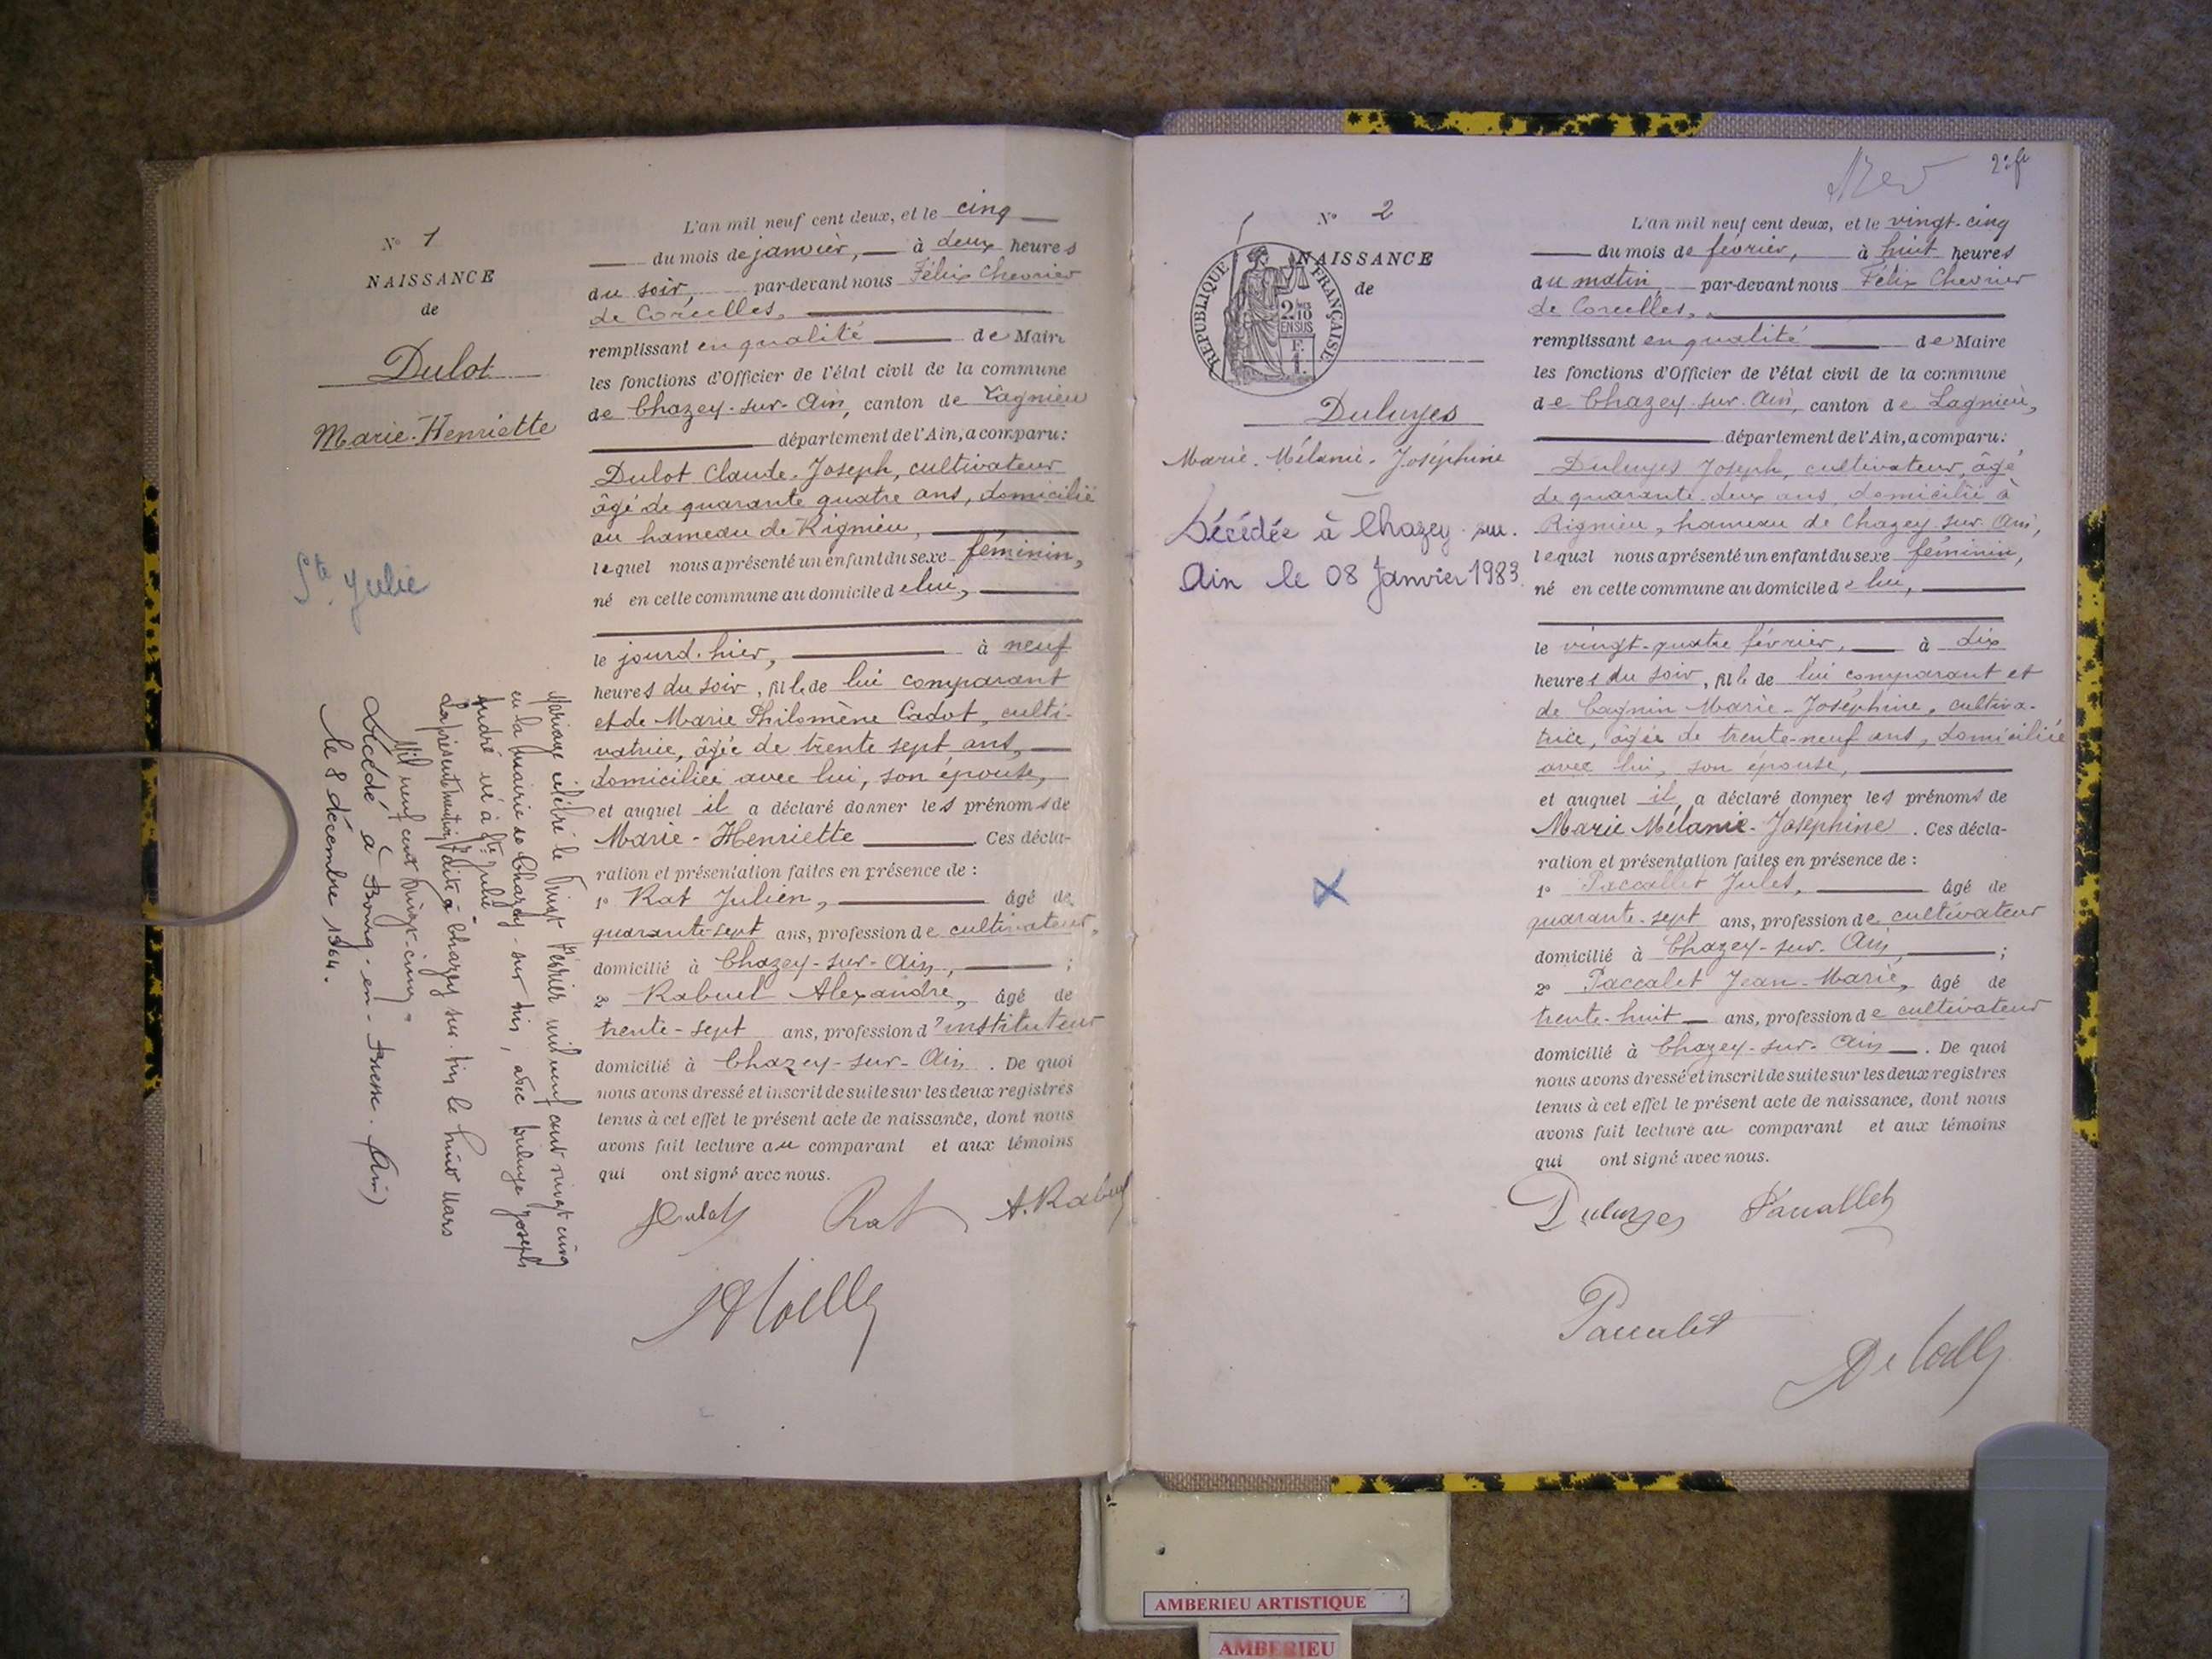 N° 1
NAISSANCE
de
Dulot
Marie-Henriette
Ste Julie
Mariage célébré le vingt février mil neuf cent vingt cinq
en la mairie de Chazey-sur-Ain, avec Joseph
André né à Ste Julie.
La présente mention faite à Chazey sur Ain le huit Mars
Mil neuf cent vingt-cinq
Décédé à Bourg-en-Bresse. (Ain)
le 8 décembre 1964.
L'an mil neuf cent deux, et le cinq
du mois de janvier, à deux heures
du soir, par-devant nous Félix Chevrier
de Corcelles,
remplissant en qualité de Maire
les fonctions d'Officier de l'état civil de la commune
de Chazey-sur-Ain, canton de Lagnieu
département de l'Ain, a comparu:
Dulot Claude-Joseph, cultivateur
âgé de quarante quatre ans, domicilié
au hameau de Rignieu,
lequel nous a présenté un enfant du sexe féminin,
né en cette commune au domicile de lui,
le jourd'hier, à neuf
heures du soir, fille de lui comparant
et de Marie Philomène Cadot, culti-
vatrice, âgée de trente sept ans,
domiciliée avec lui, son épouse,
et auquel il a déclaré donner les prénoms de
Marie-Henriette. Ces décla-
ration et présentation faites en présence de :
1° Rat Julien, âgé de
quarante-sept ans, profession de cultivateur,
domicilié à Chazey-sur-Ain, ;
2° Rabuel Alexandre, âgé de
trente-sept ans, profession d'instituteur
domicilié à Chazey-sur-Ain. De quoi
nous avons dressé et inscrit de suite sur les deux registres
tenus à cet effet le présent acte de naissance, dont nous
avons fait lecture au comparant et aux témoins
qui ont signé avec nous.
Dulot Rat A. Rabuel
2e f
N° 2
NAISSANCE
de
REPUBLIQUE FRANÇAISE
2/10
EN SUS
F.
1.
Duluyes
Marie-Mélanie-Joséphine
Décédée à Chazey-sur-
Ain le 08 Janvier 1983.
L'an mil neuf cent deux, et le vingt-cinq
du mois de février, à huit heures
du matin par-devant nous Félix Chevrier
de Corcelles,
remplissant en qualité de Maire
les fonctions d'Officier de l'état civil de la commune
de Chazey-sur-Ain, canton de Lagnieu,
département de l'Ain, a comparu:
Duluyes Joseph, cultivateur, âgé
de quarante-deux ans, domicilié à
Rignieu, hameau de Chazey-sur-Ain,
lequel nous a présenté un enfant du sexe féminin,
né en cette commune au domicile de lui,
le vingt-quatre février, à dix
heures du soir, fille de lui comparant et
de Cagnin Marie-Joséphine, cultiva-
trice, âgée de trente-neuf ans, domiciliée
avec lui, son épouse,
et auquel il a déclaré donner les prénoms de
Marie Mélanie-Joséphine. Ces décla-
ration et présentation faites en présence de :
1° Paccallet Jules, âgé de
quarante-sept ans, profession de cultivateur
domicilié à Chazey-sur-Ain, ;
2° Paccalet Jean-Marie, âgé de
trente-huit ans, profession de cultivateur
domicilié à Chazey-sur-Ain. De quoi
nous avons dressé et inscrit de suite sur les deux registres
tenus à cet effet le présent acte de naissance, dont nous
avons fait lecture au comparant et aux témoins
qui ont signé avec nous.
Duluyes Paccallet
Paccalet
AMBERIEU ARTISTIQUE
AMBERIEU